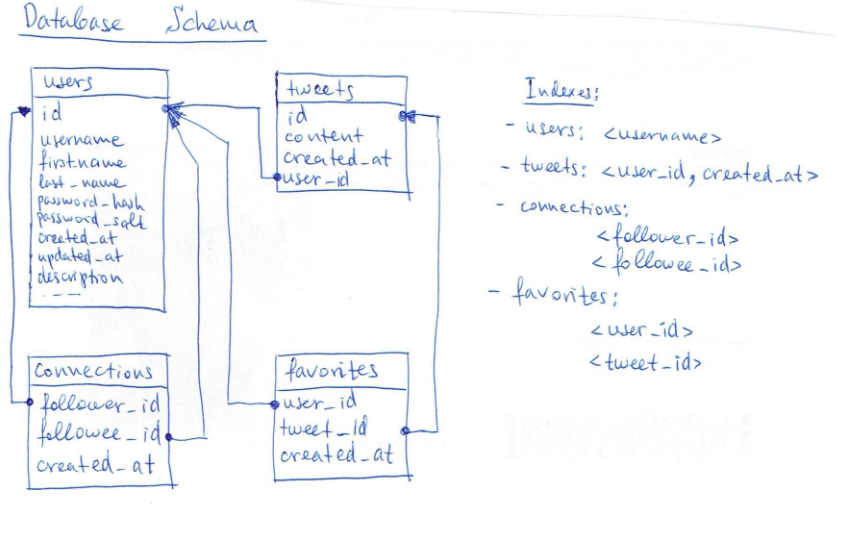 Database Schema
users
id
username
first_name
last_name
password_hash
password_salt
created_at
updated_at
description
. ---
tweets
id
content
created_at
user_id
connections
follower_id
followee_id
created_at
favorites
user_id
tweet_id
created_at
Indexes:
- users: <username>
- tweets: <user_id, created_at>
- connections:
<follower_id>
<followee_id>
- favorites:
<user_id>
<tweet_id>